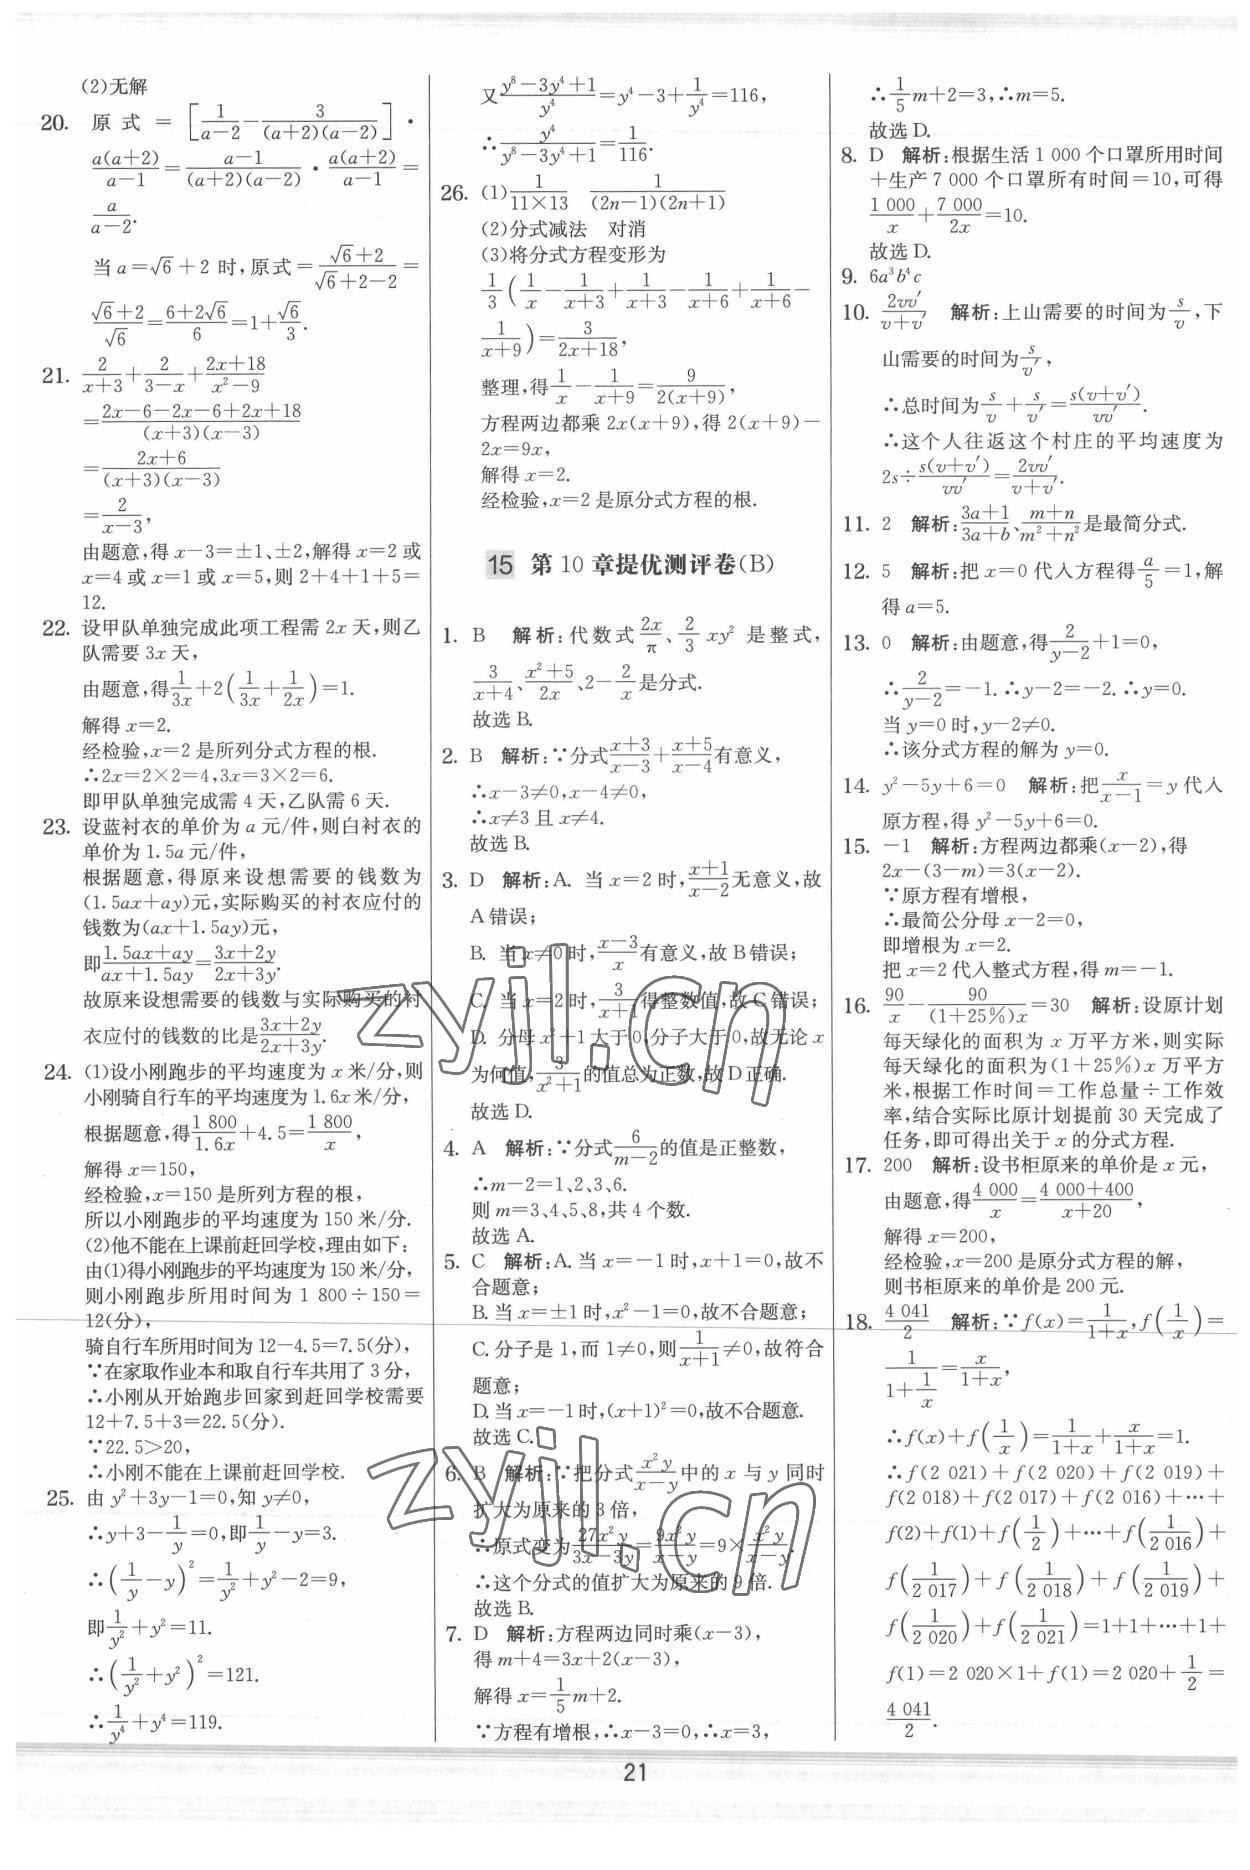 (2)无解
20. 原式=[1/(a-2)-3/((a+2)(a-2))]·
a(a+2)/(a-1)=(a-1)/((a+2)(a-2))·a(a+2)/(a-1)=
a/(a-2).
当a=√6+2时,原式=(√6+2)/(√6+2-2)=
(√6+2)/√6=(6+2√6)/6=1+√6/3.
21. 2/(x+3)+2/(3-x)+(2x+18)/(x²-9)
=(2x-6-2x-6+2x+18)/((x+3)(x-3))
=(2x+6)/((x+3)(x-3))
=2/(x-3),
由题意,得x-3=±1、±2,解得x=2或
x=4或x=1或x=5,则2+4+1+5=
12.
22. 设甲队单独完成此项工程需2x天,则乙
队需要3x天,
由题意,得1/3x+2(1/3x+1/2x)=1.
解得x=2.
经检验,x=2是所列分式方程的根.
∴2x=2×2=4,3x=3×2=6.
即甲队单独完成需4天,乙队需6天.
23. 设蓝衬衣的单价为a元/件,则白衬衣的
单价为1.5a元/件,
根据题意,得原来设想需要的钱数为
(1.5ax+ay)元,实际购买的衬衣应付的
钱数为(ax+1.5ay)元,
即(1.5ax+ay)/(ax+1.5ay)=(3x+2y)/(2x+3y).
故原来设想需要的钱数与实际购买的衬
衣应付的钱数的比是(3x+2y)/(2x+3y).
24. (1)设小刚跑步的平均速度为x米/分,则
小刚骑自行车的平均速度为1.6x米/分,
根据题意,得1 800/1.6x+4.5=1 800/x,
解得x=150,
经检验,x=150是所列方程的根,
所以小刚跑步的平均速度为150米/分.
(2)他不能在上课前赶回学校,理由如下:
由(1)得小刚跑步的平均速度为150米/分,
则小刚跑步所用时间为1 800÷150=
12(分),
骑自行车所用时间为12-4.5=7.5(分),
∵在家取作业本和取自行车共用了3分,
∴小刚从开始跑步回家到赶回学校需要
12+7.5+3=22.5(分).
∵22.5>20,
∴小刚不能在上课前赶回学校.
25. 由y²+3y-1=0,知y≠0,
∴y+3-1/y=0,即1/y-y=3.
∴(1/y-y)²=1/y²+y²-2=9,
即1/y²+y²=11.
∴(1/y²+y²)²=121.
∴1/y⁴+y⁴=119.
又(y⁸-3y⁴+1)/y⁴=y⁴-3+1/y⁴=116,
∴y⁴/(y⁸-3y⁴+1)=1/116.
26. (1)1/(11×13) 1/((2n-1)(2n+1))
(2)分式减法 对消
(3)将分式方程变形为
1/3(1/x-1/(x+3)+1/(x+3)-1/(x+6)+1/(x+6)-
1/(x+9))=3/(2x+18),
整理,得1/x-1/(x+9)=9/(2(x+9)),
方程两边都乘2x(x+9),得2(x+9)-
2x=9x,
解得x=2.
经检验,x=2是原分式方程的根.
15 第10章提优测评卷(B)
1. B 解析:代数式2x/π、2/3 xy²是整式,
3/(x+4)、(x²+5)/2x、2-2/x是分式.
故选B.
2. B 解析:∵分式(x+3)/(x-3)÷(x+5)/(x-4)有意义,
∴x-3≠0,x-4≠0,
∴x≠3且x≠4.
故选B.
3. D 解析:A. 当x=2时,(x+1)/(x-2)无意义,故
A错误;
B. 当x≠0时,(x-3)/x有意义,故B错误;
C. 当x=2时,3/(x+1)得整数值,故C错误;
D. 分母x²+1大于0,分子大于0,故无论x
为何值,3/(x²+1)的值总为正数,故D正确.
故选D.
4. A 解析:∵分式6/(m-2)的值是正整数,
∴m-2=1、2、3、6.
则m=3、4、5、8,共4个数.
故选A.
5. C 解析:A. 当x=-1时,x+1=0,故不
合题意;
B. 当x=±1时,x²-1=0,故不合题意;
C. 分子是1,而1≠0,则1/(x+1)≠0,故符合
题意;
D. 当x=-1时,(x+1)²=0,故不合题意.
故选C.
6. B 解析:∵把分式x²y/(x-y)中的x与y同时
扩大为原来的3倍,
∴原式变为27x²y/(3x-3y)=9x²y/(x-y)=9×x²y/(x-y).
∴这个分式的值扩大为原来的9倍.
故选B.
7. D 解析:方程两边同时乘(x-3),
得m+4=3x+2(x-3),
解得x=1/5 m+2.
∵方程有增根,∴x-3=0,∴x=3,
∴1/5 m+2=3,∴m=5.
故选D.
8. D 解析:根据生活1 000个口罩所用时间
+生产7 000个口罩所有时间=10,可得
1 000/x+7 000/2x=10.
故选D.
9. 6a³b⁴c
10. 2vv′/(v+v′) 解析:上山需要的时间为s/v,下
山需要的时间为s/v′,
∴总时间为s/v+s/v′=s(v+v′)/vv′.
∴这个人往返这个村庄的平均速度为
2s÷s(v+v′)/vv′=2vv′/(v+v′).
11. 2 解析:(3a+1)/(3a+b)、(m+n)/(m²+n²)是最简分式.
12. 5 解析:把x=0代入方程得a/5=1,解
得a=5.
13. 0 解析:由题意,得2/(y-2)+1=0,
∴2/(y-2)=-1.∴y-2=-2.∴y=0.
当y=0时,y-2≠0.
∴该分式方程的解为y=0.
14. y²-5y+6=0 解析:把x/(x-1)=y代入
原方程,得y²-5y+6=0.
15. -1 解析:方程两边都乘(x-2),得
2x-(3-m)=3(x-2).
∵原方程有增根,
∴最简公分母x-2=0,
即增根为x=2.
把x=2代入整式方程,得m=-1.
16. 90/x-90/((1+25%)x)=30 解析:设原计划
每天绿化的面积为x万平方米,则实际
每天绿化的面积为(1+25%)x万平方
米,根据工作时间=工作总量÷工作效
率,结合实际比原计划提前30天完成了
任务,即可得出关于x的分式方程.
17. 200 解析:设书柜原来的单价是x元,
由题意,得4 000/x=(4 000+400)/(x+20),
解得x=200,
经检验,x=200是原分式方程的解,
则书柜原来的单价是200元.
18. 4 041/2 解析:∵f(x)=1/(1+x),f(1/x)=
1/(1+1/x)=x/(1+x),
∴f(x)+f(1/x)=1/(1+x)+x/(1+x)=1.
∴f(2 021)+f(2 020)+f(2 019)+
f(2 018)+f(2 017)+f(2 016)+⋯+
f(2)+f(1)+f(1/2)+⋯+f(1/2 016)+
f(1/2 017)+f(1/2 018)+f(1/2 019)+
f(1/2 020)+f(1/2 021)=1+1+⋯+1+
f(1)=2 020×1+f(1)=2 020+1/2=
4 041/2.
zyjl.cn
zyjl.cn
21